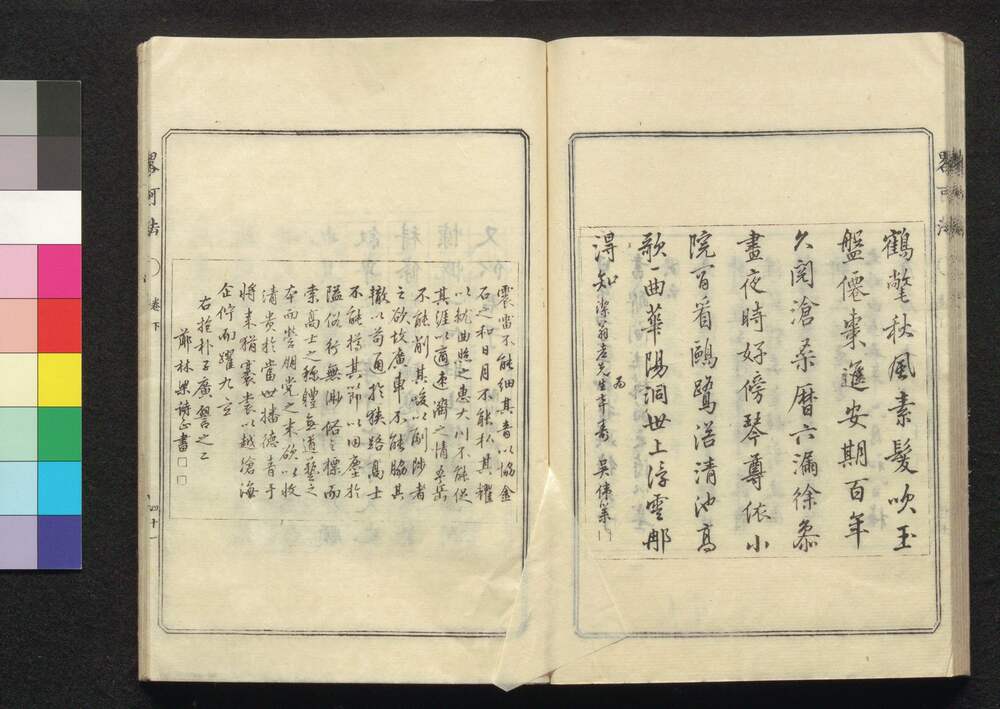 畧可法
鶴氅秋風素髮吹玉
盤僊棗遲安期百年
久閱滄桑曆六漏徐參
晝夜時好傍琴尊依小
院閒看鷗鷺浴清池高
歌一曲華陽洞世上浮雲那
得知 為
潔翁老先生壽 吳偉業
震雷不能細其音以協金
石之和日月不能私其耀
以就曲照之惠大川不能促
其涯以適速濟之情五岳
不能削其峻以副陟者
之欲故廣車不能脇其
轍以苟通於狹路高士
不能撙其節以同塵於
隘俗行無邈俗之標而
索高士之稱體無道藝之
本而營朋黨之末欲以收
清貴於當世播德音于
將來猶褰裳以越滄海
企佇而躍九玄
右抱朴子廣譬之二
薌林梁詩正書
畧可法 卷下 四十一